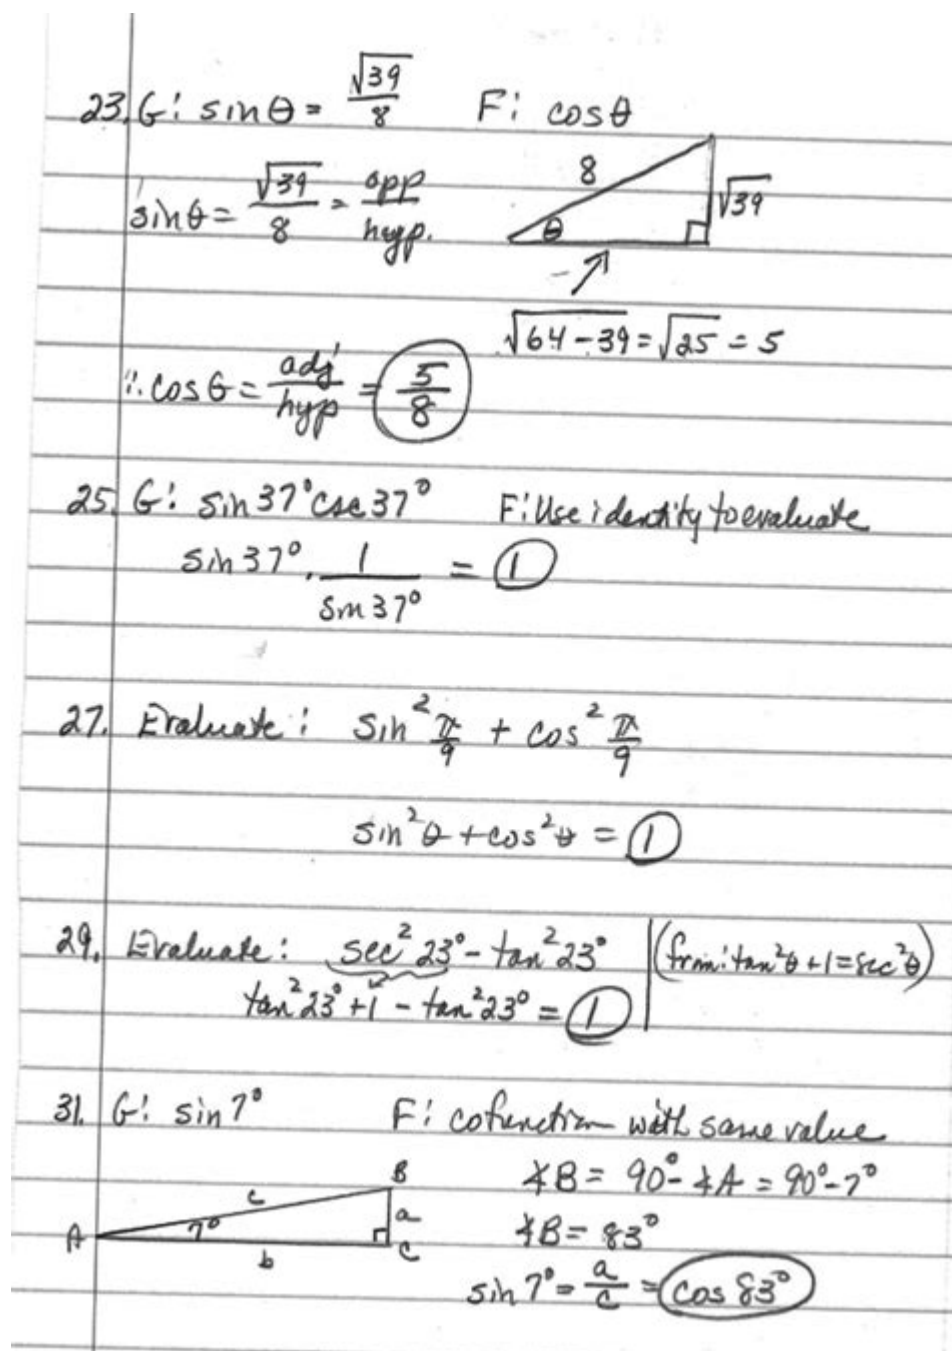 23. G: sin θ = √39/8 F: cos θ
sin θ = √39/8 = opp/hyp.
8
√39
θ
√64-39 = √25 = 5
∴ cos θ = adj/hyp = 5/8
25. G: sin 37° csc 37° F: Use identity to evaluate
sin 37° · 1/sin 37° = 1
27. Evaluate: sin² π/9 + cos² π/9
sin² θ + cos² θ = 1
29. Evaluate: sec² 23° - tan² 23° (from: tan² θ + 1 = sec² θ)
tan² 23° + 1 - tan² 23° = 1
31. G: sin 7° F: cofunction with same value
A 7° c B a C b
∡B = 90° - ∡A = 90° - 7°
∡B = 83°
sin 7° = a/c = cos 83°